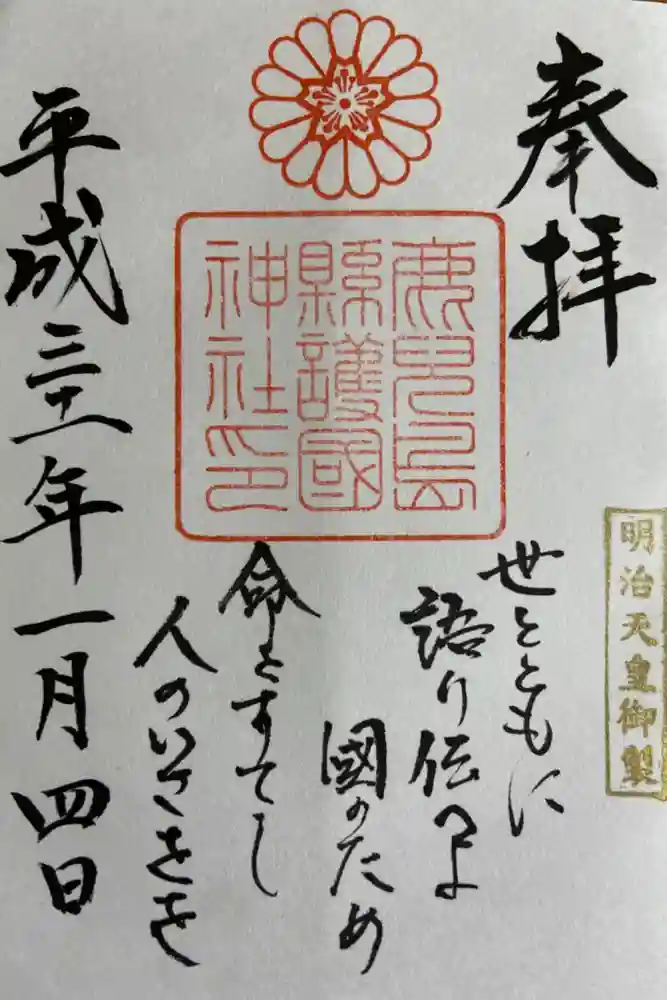 奉拝
明治天皇御製
鹿児島
縣護國
神社印
世とともに
語り伝へよ
國のため
命をすてし
人のいさをを
平成三十一年一月四日